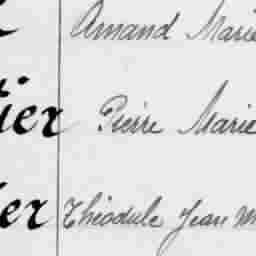 Amand Marie
ier Pierre Marie
er Théodule Jean M